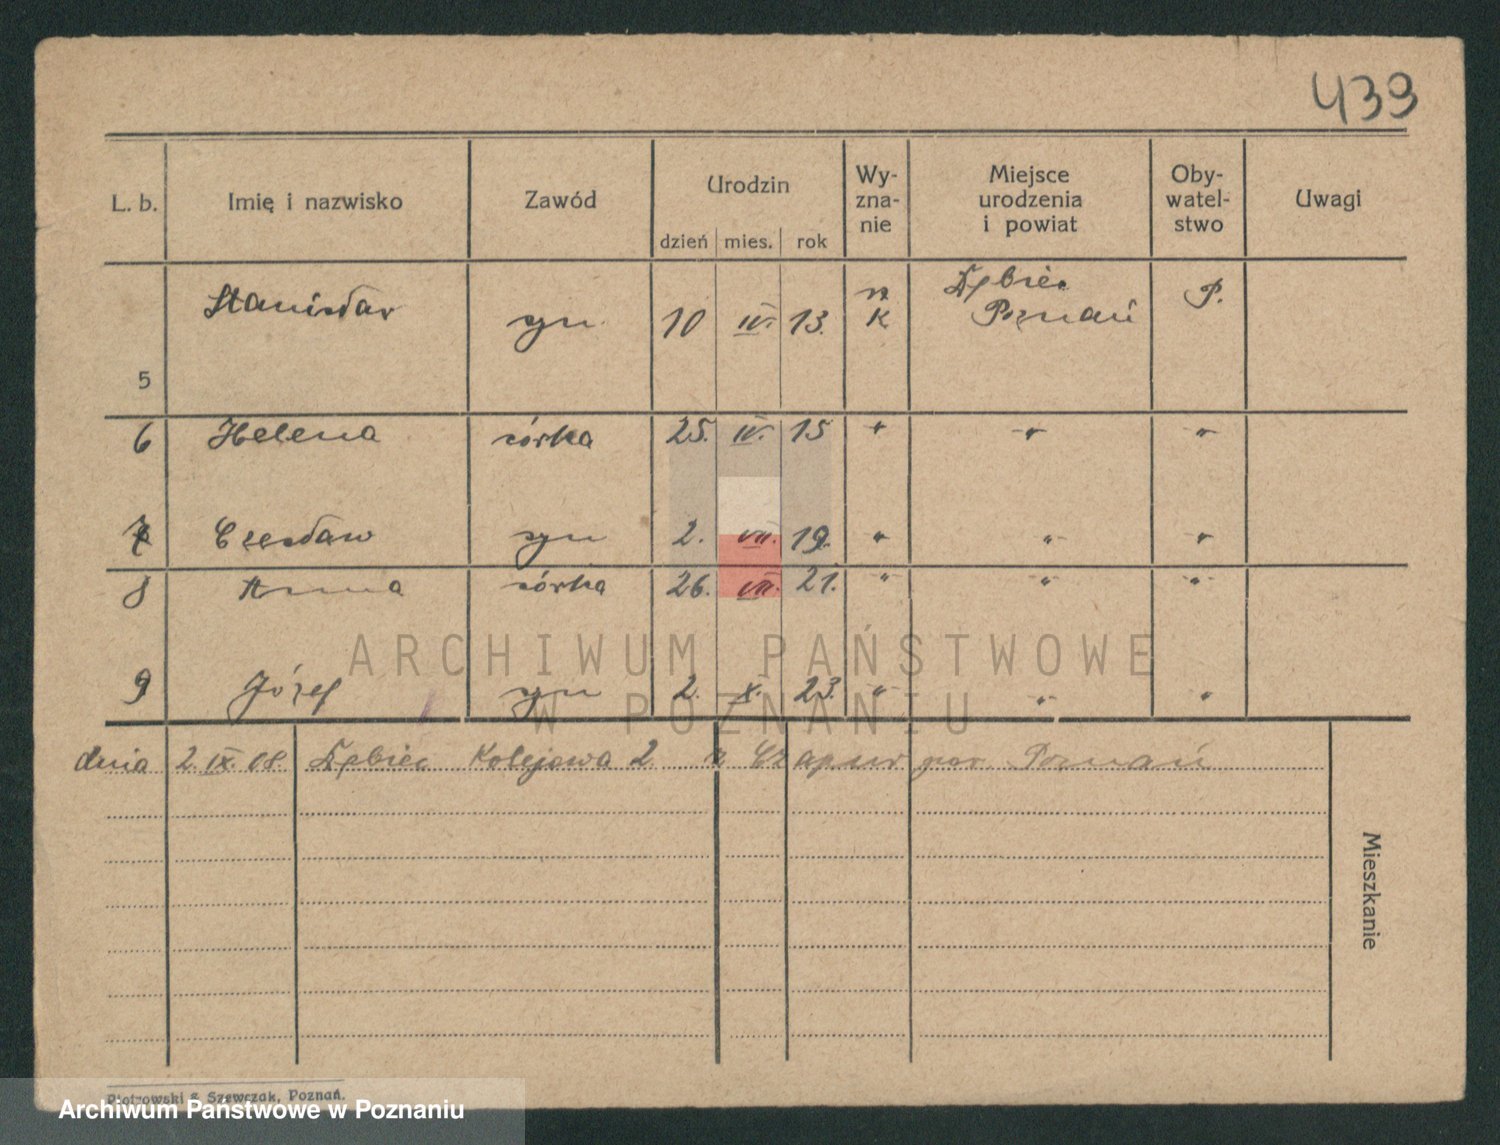 439
L. b. Imię i nazwisko Zawód Urodzin dzień mies. rok Wy-zna-nie Miejsce urodzenia i powiat Oby-watel-stwo Uwagi
Dębiec
5 Stanisław syn 10 IV. 13. rz K Poznań P.
6 Helena córka 25. IV. 15 " " "
7 Czesław syn 2. VII. 19. " " "
8 Anna córka 26. VII. 21. " " "
9 Józef syn 2. X. 23. " " "
ARCHIWUM PAŃSTWOWE
W POZNANIU
dnia 2 IX 08 Dębiec Kolejowa 2 z Czapur pow. Poznań
Mieszkanie
Piotrowski & Szewczak, Poznań.
Archiwum Państwowe w Poznaniu